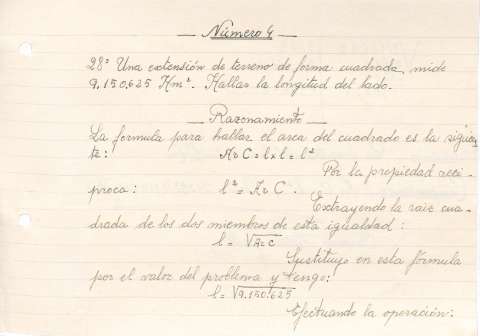 — Número 4 —
28ª Una extensión de terreno de forma cuadrada, mide
9,150.625 Hm². Hallar la longitud del lado.
— Razonamiento —
La formula para hallar el area del cuadrado es la siguien
te: Ar C = l x l = l²
Por la propiedad reci
proca: l² = Ar C.
Extrayendo la raiz cua-
drada de los dos miembros de esta igualdad:
l = √Ar C
Sustituyo en esta fórmula
por el valor del problema y tengo:
l = √9.150.625
Efectuando la operación: